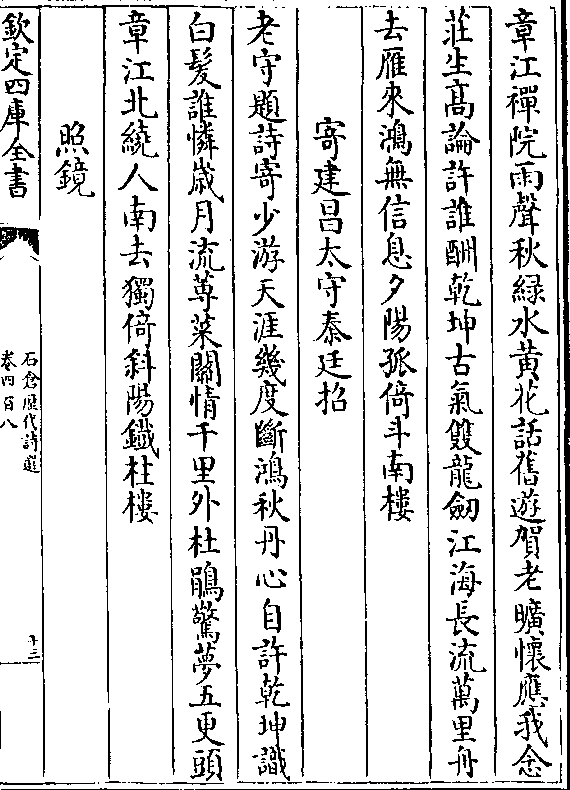 章江禪院雨聲秋緑水黄花話舊遊賀老曠懷應我念
莊生髙論許誰酬乾坤古氣雙龍劒江海長流萬里舟
去雁來鴻無信息夕陽孤倚斗南樓
寄建昌太守秦廷招
老守題詩寄少游天涯幾度斷鴻秋丹心自許乾坤識
白髪誰憐嵗月流蓴菜闗情千里外杜鵑驚夢五更頭
章江北繞人南去獨倚斜陽鐵柱樓
照鏡
欽定四庫全書
石倉歴代詩選
卷四百八
十三